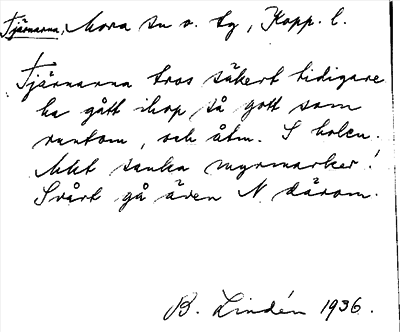 Tjärnarna, Mora sn o. tg, Kopp. l.
Tjärnarna tros säkert tidigare
ha gått ihop så gott som
runtom, och åtm. S holen.
Mkt sanka myrmarker!
Svårt gå även N därom.
B. Lindén 1936.